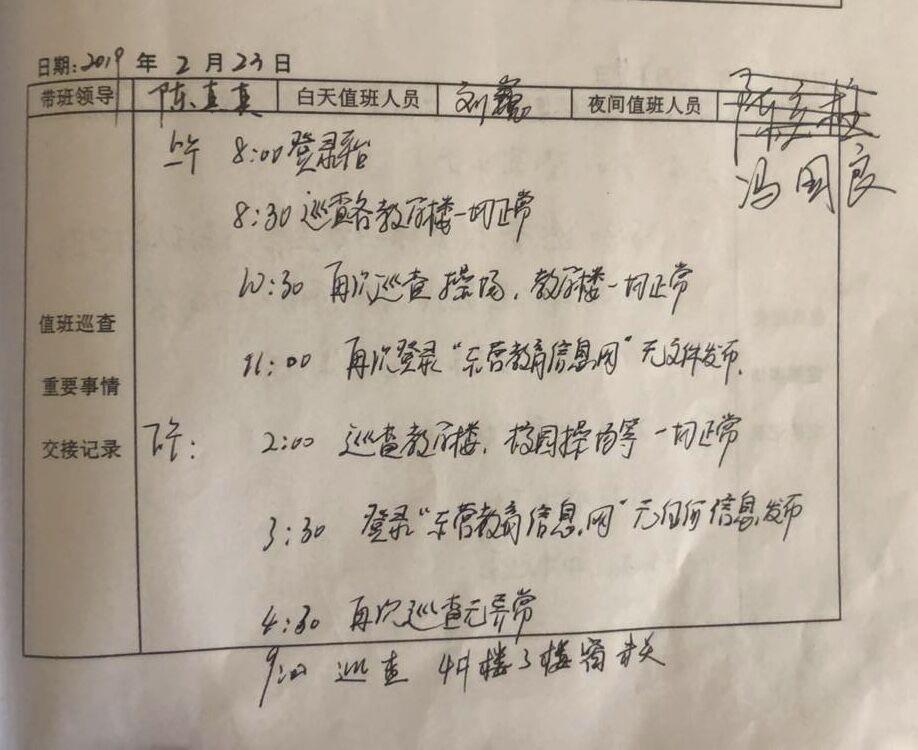 日期:2019年2月23日
带班领导 陈真真 白天值班人员 刘巍 夜间值班人员
冯国良
上午 8:00登录平台
8:30巡查各教学楼一切正常
10:30 再次巡查操场,教学楼一切正常
值班巡查
11:00 再次登录“东营教育信息网”无文件发布.
重要事情
交接记录
下午: 2:00 巡查教学楼,校园操场等一切正常
3:30 登录“东营教育信息网”无任何信息发布
4:30 再次巡查无异常
9:00 巡查 4#楼3楼窗未关